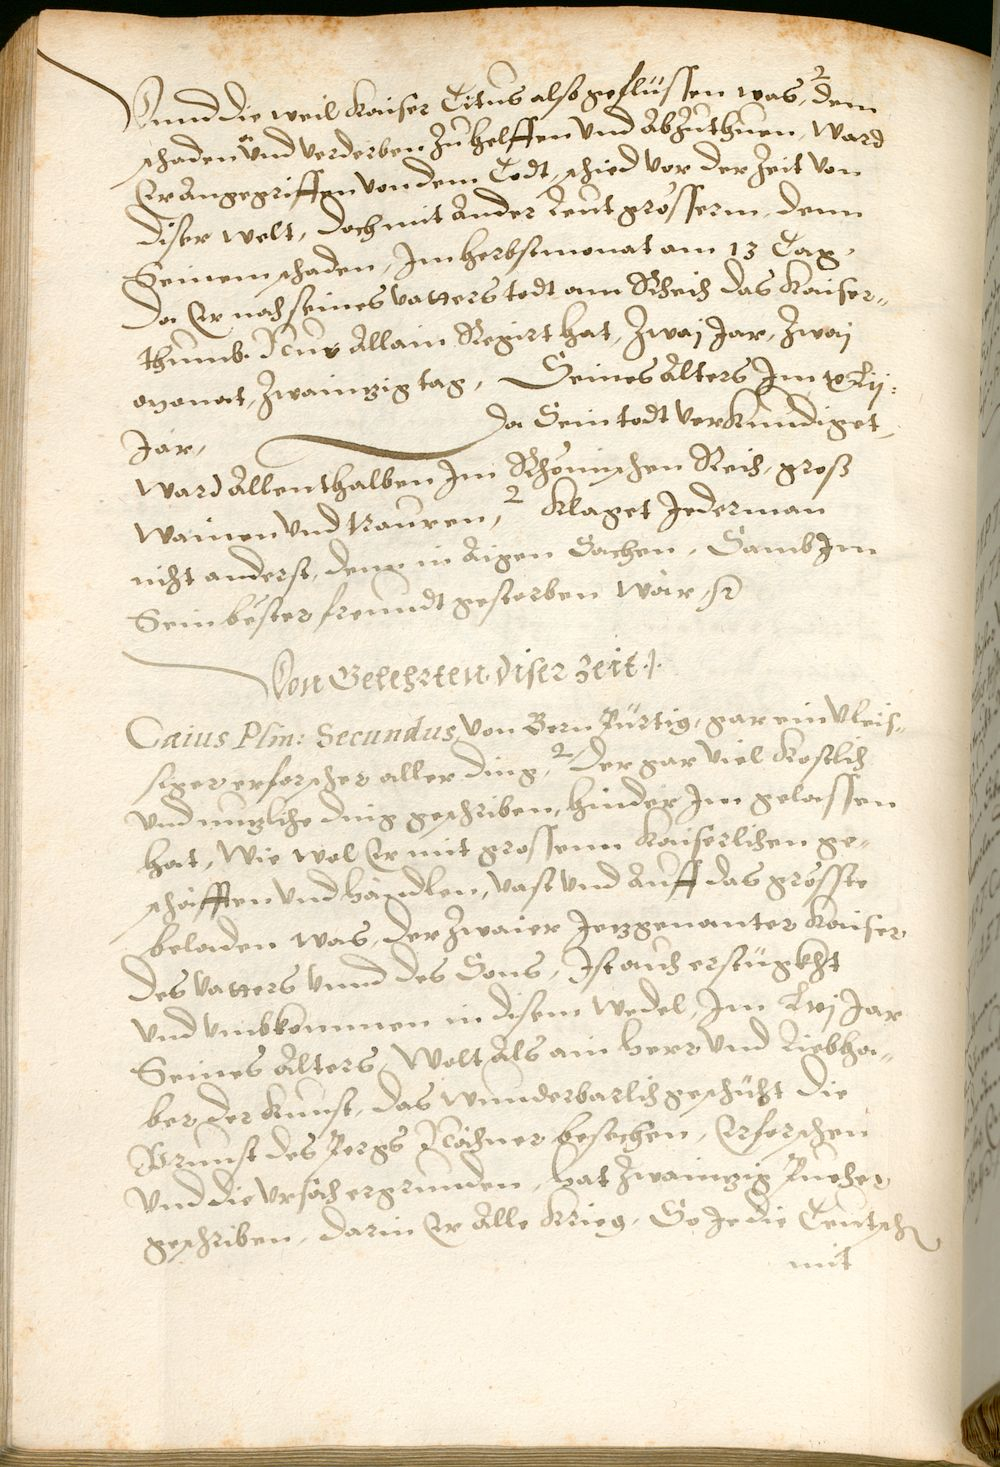 Vnnd die weil Kaiser Titus also geflüssen was, dem
schaden vnd verderben zu helffen vnd abzuthuen, ward
Er angegriffen von dem Todt, schied vor der Zeit von
diser welt, doch mit ander leut grösserm, denn
Seinem schaden, Im herbstmonat am 13 Tag,
da Er nach seines vatters todt am Rheich das Kaiser„
thumb. Nur Allain Regirt hat, Zwaj Jar, Zwaj
monat, Zwainzig tag, Seines Alters Im xLij:
Jar, da Sein todt verkundiget
ward Allenthalben Im Rhömischen Reich, groß
wainen vnd trauren, Klaget Jederman
nicht anderst, denn in Aigen Sachen, Samb Im
Sein bester freundt gestorben wär,
Von Gelehrten diser Zeit.
Caius Plin: Secundus von Bern Pürtig, gar ein vleis„
siger erforscher aller ding, der gar viel Kostlich
vnd nuzliche ding geschriben, hinder Im gelassen
hat, Wie wol Er mit grossenn Kaiserlichen ge„
schäfften vnd händlen, vast vnd Auff das grösste
beladen was, der Zwaier Jezgenanter Kaiser
des vatters vnnd des Sons, Ist auch erstückht
vnd vmbkommen in disem wedel, Im Lvj Jar
Seines Alters, Wolt Als ain herr vnd Liebha„
ber der Kunst, das wunderbarlich geschücht die
Brunst des Pergs besechen, Erforschen
vnd die vrsach ergrunden, hat Zwainzig Puecher
geschriben, darin Er Alle Krieg, So Je die Teutsch
mit